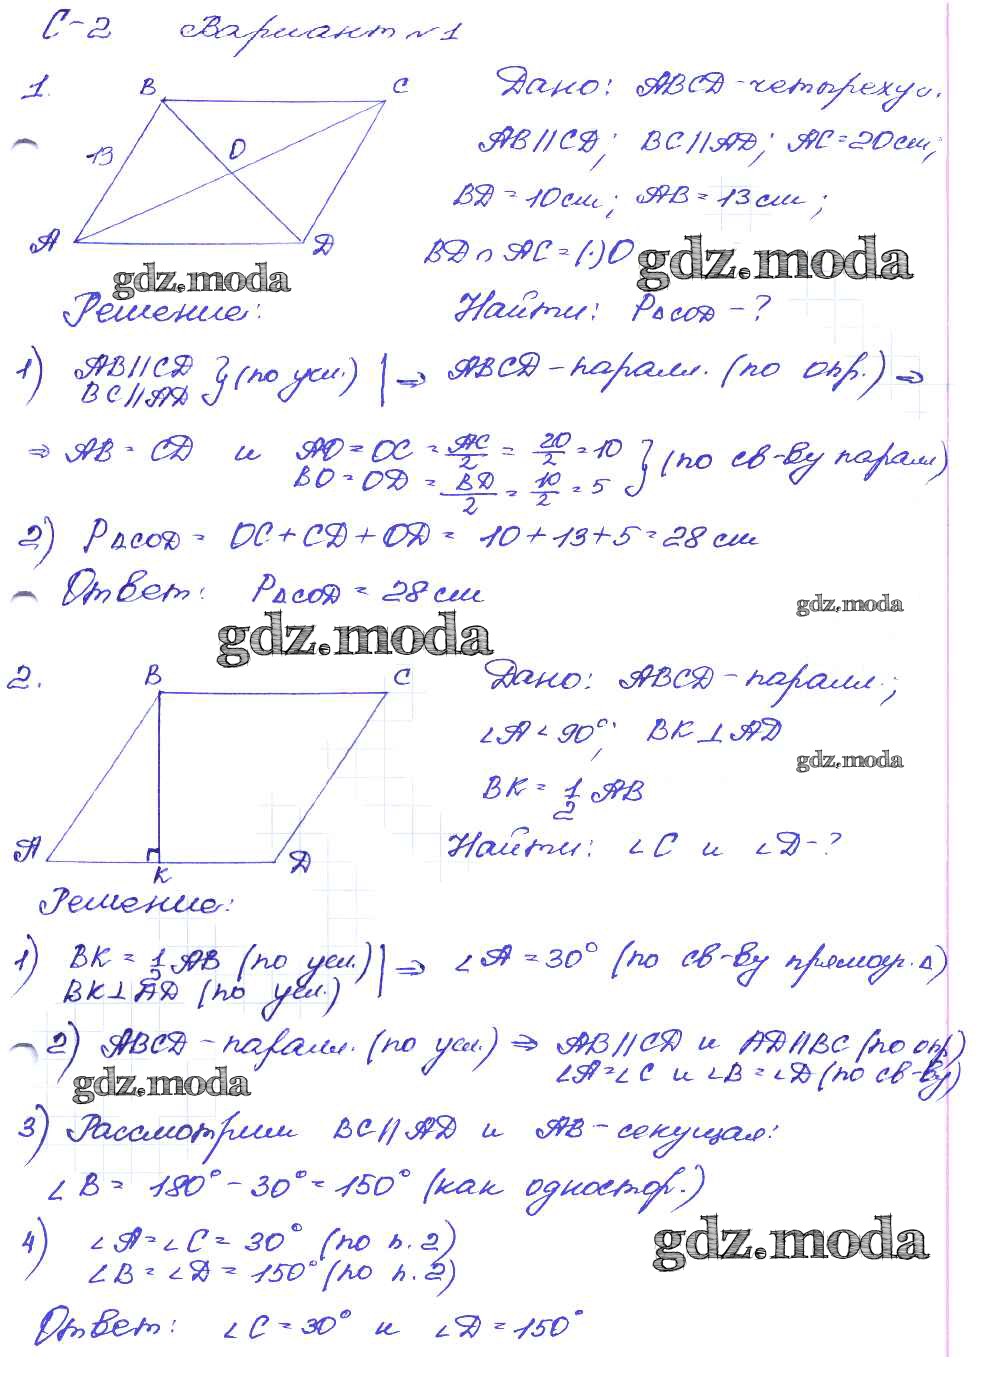 С-2 Вариант №1
1.
B C
13 O
A D
Дано: ABCD - четыреху.
AB || CD; BC || AD; AC = 20 см;
BD = 10 см; AB = 13 см;
BD ∩ AC = (·) O
gdz.moda
gdz.moda
Решение:
Найти: P△COD - ?
1) AB || CD
BC || AD } (по усл.) | ⇒ ABCD - паралл. (по опр.) ⇒
⇒ AB = CD и AO = OC = AC/2 = 20/2 = 10
BO = OD = BD/2 = 10/2 = 5 } (по св-ву паралл)
2) P△COD = OC + CD + OD = 10 + 13 + 5 = 28 см
Ответ: P△COD = 28 см
gdz.moda
gdz.moda
2.
B C
A K D
Дано: ABCD - паралл.;
∠A < 90°; BK ⊥ AD
gdz.moda
BK = 1/2 AB
Найти: ∠C и ∠D - ?
Решение:
1) BK = 1/2 AB (по усл.)
BK ⊥ AD (по усл.) | ⇒ ∠A = 30° (по св-ву прямоуг. △)
2) ABCD - паралл. (по усл.) ⇒ AB || CD и AD || BC (по опр)
∠A = ∠C и ∠B = ∠D (по св-ву)
gdz.moda
3) Рассмотрим BC || AD и AB - секущая:
∠B = 180° - 30° = 150° (как одностор.)
4) ∠A = ∠C = 30° (по п. 2)
∠B = ∠D = 150° (по п. 2)
gdz.moda
Ответ: ∠C = 30° и ∠D = 150°